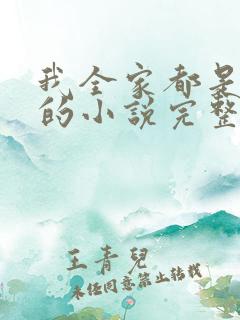 我全家都是
的小说完整
王青兒
未经同意禁止转载